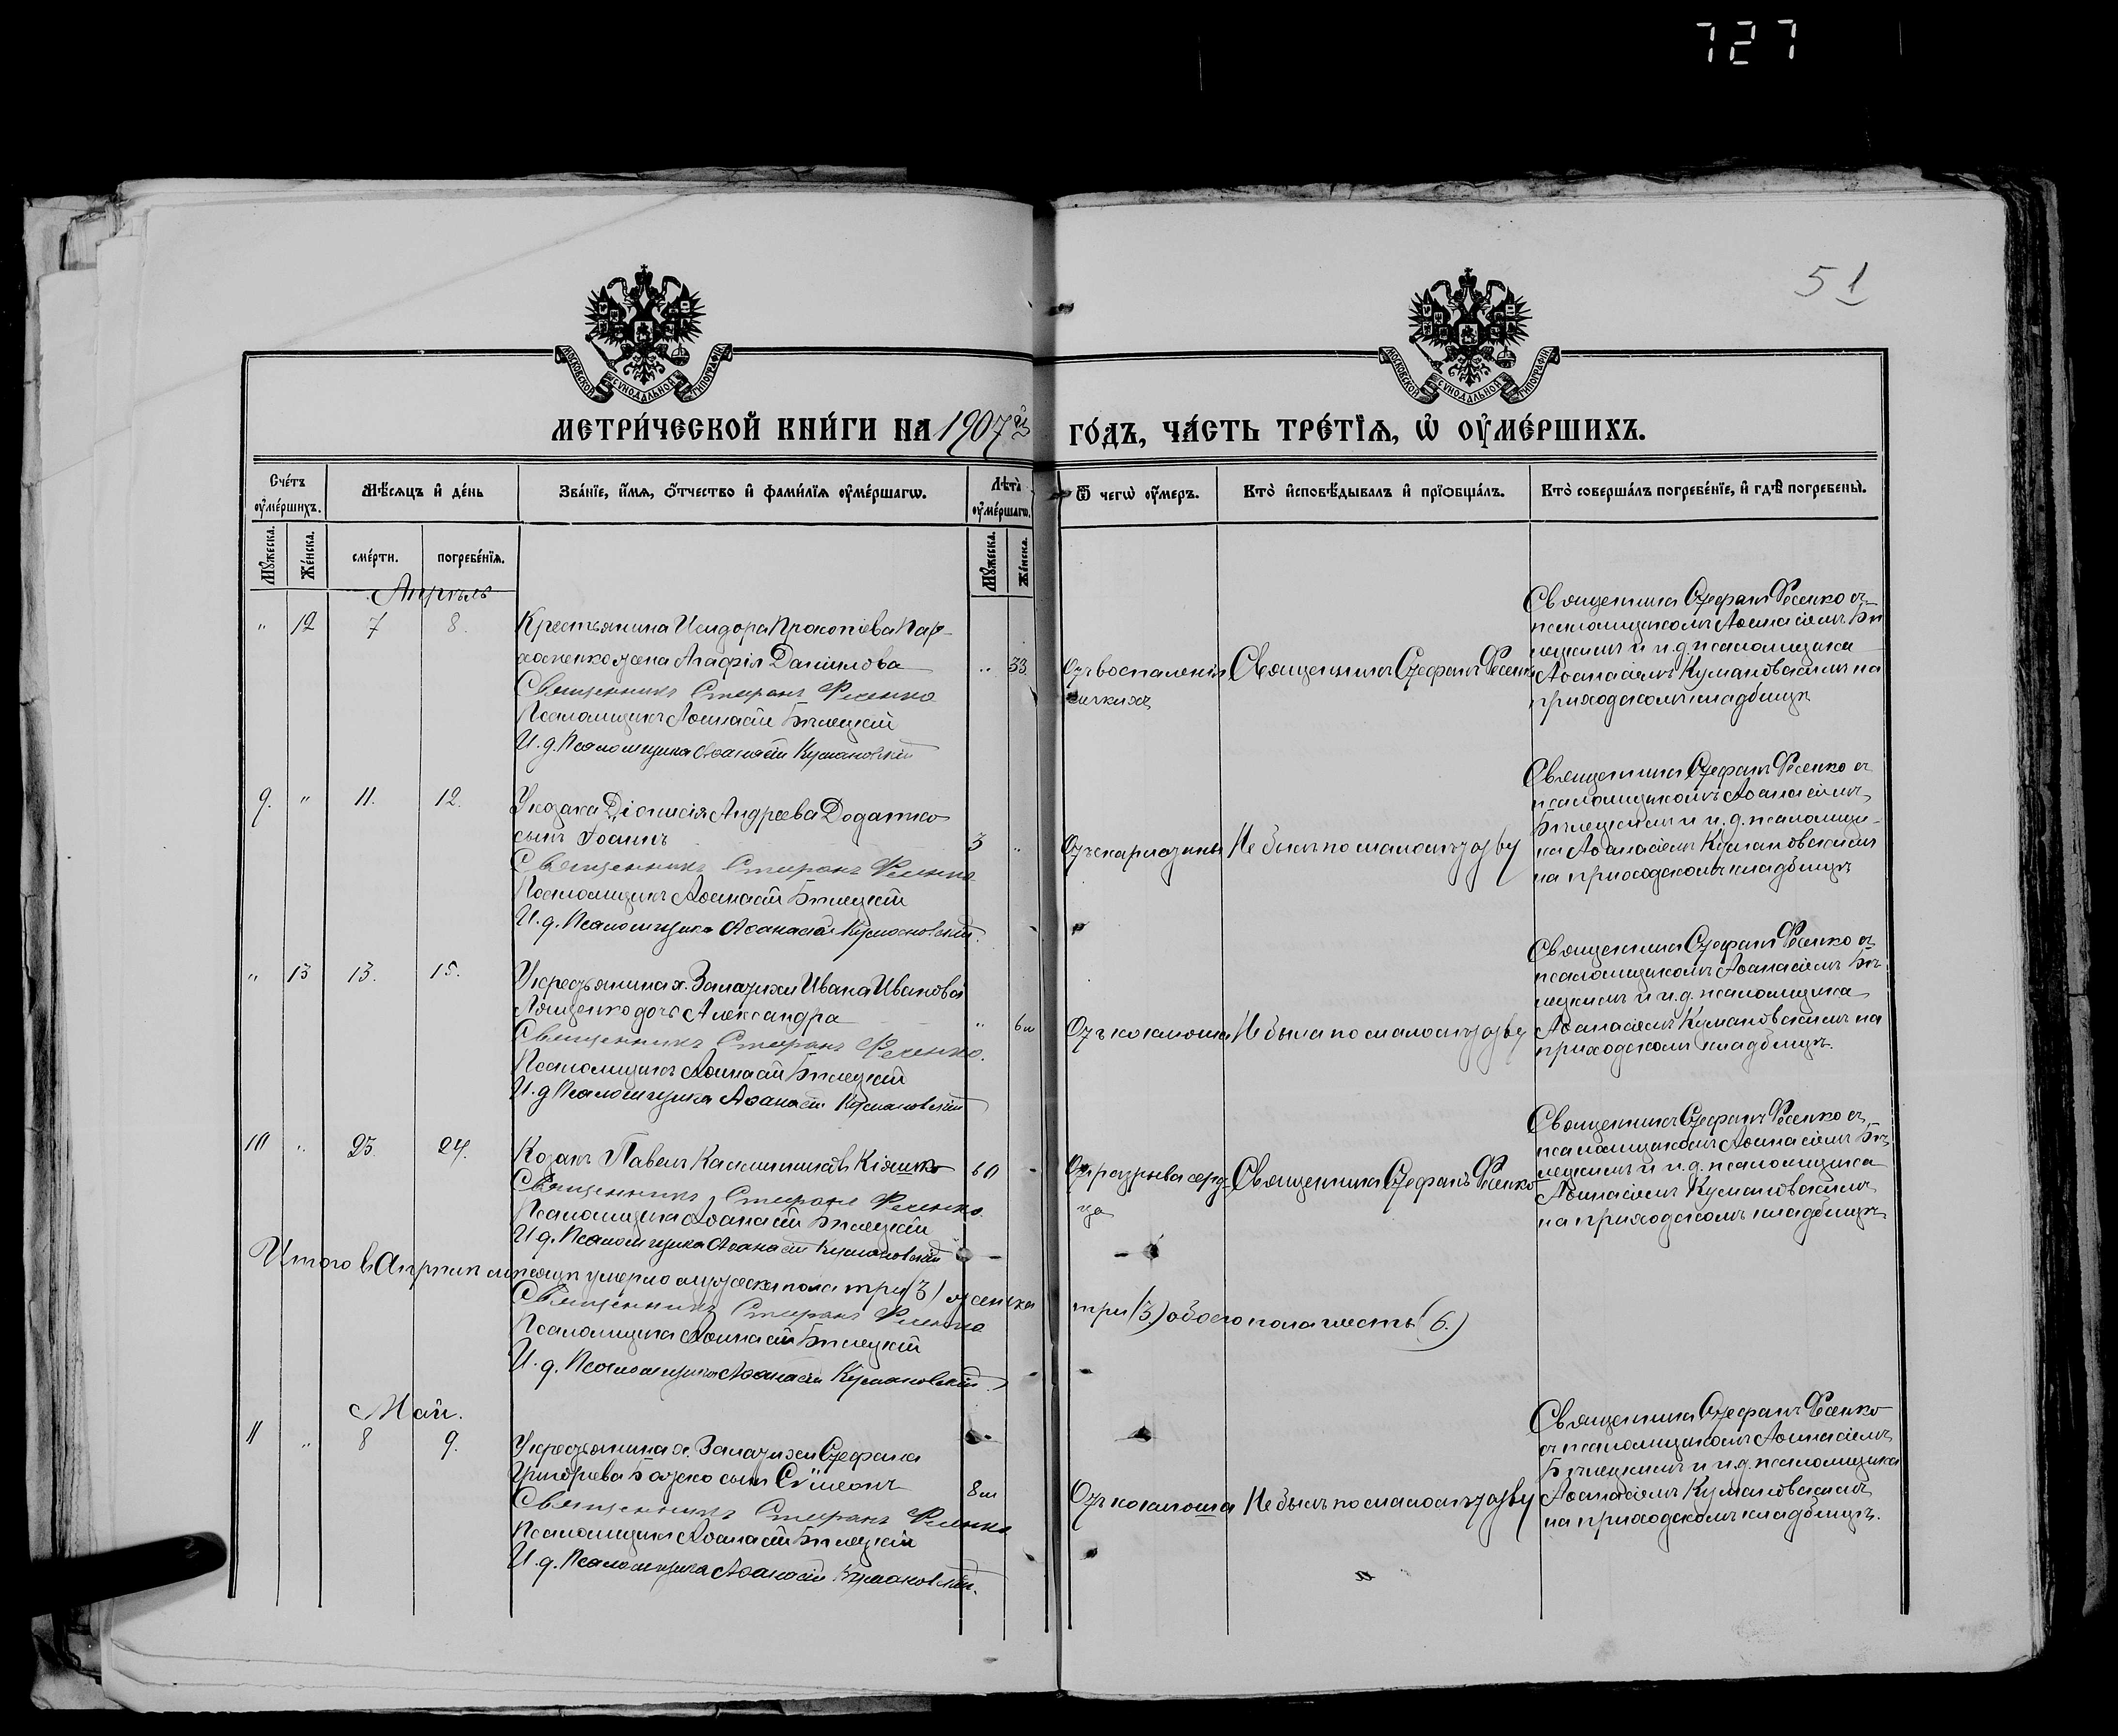 727
51
МОСКОВСКОЙ СУНОДАЛЬНОЙ ТИПОГРАФІИ
МОСКОВСКОЙ СУНОДАЛЬНОЙ ТИПОГРАФІИ
МЕТРИ́ЧЕСКОЙ КНИ́ГИ НА 1907й ГО́ДЪ, ЧА́СТЬ ТРЕ́ТЇѦ, Ѡ҆ ОУ҆МЕ́РШИХЪ.
Сче́тъ оу҆ме́ршихъ.
Мѣ́сѧцъ и҆ де́нь
Зва́нїе, и҆́мѧ, ѻ҆́тчество и҆ фами́лїѧ оу҆ме́ршагѡ.
Лѣ́та оу҆ме́ршагѡ.
Ѿ чегѡ̀ оу҆́меръ.
Кто̀ и҆сповѣ́дывалъ и҆ прїѡбща́лъ.
Кто̀ соверша́лъ погребе́нїе, и҆ гдѣ̀ погребены̀.
Мꙋ́жеска.
Же́нска.
сме́рти.
погребе́нїѧ.
Мꙋ́жеска.
Же́нска.
Апрѣль
" 12 7 8.
Крестьянина Исидора Прокопіева Пар-
хоменко жена Агафія Даніилова " 33
Священникъ Стефанъ Фесенко
Псаломщикъ Аѳанасій Бѣлецкій
И. д. Псаломщика Аѳанасій Кумановскій
Отъ воспаленія
легкихъ
Священникъ Стефанъ Фесенко
Священникъ Стефанъ Фесенко съ
псаломщикомъ Аѳанасіемъ Бѣ
лецкимъ и и. д. псаломщика
Аѳанасіемъ Кумановскимъ на
приходскомъ кладбищѣ
9. " 11. 12.
У козака Діонисія Андреева Додатко
сынъ Іоаннъ 3 "
Священникъ Стефанъ Фесенко
Псаломщикъ Аѳанасій Бѣлецкій
И. д. Псаломщика Аѳанасій Кумановскій.
Отъ скарлатины
Не былъ по малолѣтству
Священникъ Стефанъ Фесенко съ
псаломщикомъ Аѳанасіемъ
Бѣлецкимъ и и. д. псаломщи-
ка Аѳанасіемъ Кумановскимъ
на приходскомъ кладбищѣ
" 13 13. 15.
У крестьянина х. Запазихи Ивана Иванова
Лященко дочь Александра " 6м
Священникъ Стефанъ Фесенко.
Псаломщикъ Аѳанасій Бѣлецкій
И. д Псаломщика Аѳанасій Кумановскій
Отъ коклюша
Не была по малолѣтству
Священникъ Стефанъ Фесенко съ
псаломщикомъ Аѳанасіемъ Бѣ-
лецкимъ и и. д. псаломщика
Аѳанасіемъ Кумановскимъ на
приходскомъ кладбищѣ.
10 " 25. 27.
Козакъ Павелъ Каллиниковъ Кіяшко 60 -
Священникъ Стефанъ Фесенко.
Псаломщикъ Аѳанасій Бѣлецкій
И. д. Псаломщика Аѳанасій Кумановскій
Отъ разрыва серд-
ца
Священникъ Стефанъ Фесенко
Священникъ Стефанъ Фесенко съ
псаломщикомъ Аѳанасіемъ Бѣ-
лецкимъ и и. д. псаломщика
Аѳанасіемъ Кумановскимъ
на приходскомъ кладбищѣ.
Итого въ Апрѣлѣ мѣсяцѣ умерло мужеска пола три (3) женска три (3) обоего пола шесть (6.)
Священникъ Стефанъ Фесенко
Псаломщикъ Аѳанасій Бѣлецкій
И. д. Псаломщика Аѳанасій Кумановскій.
Май.
11 " 8 9.
У крестьянина х. Запазихи Стефана
Григорьева Божко сынъ Сѵмеонъ 8м
Священникъ Стефанъ Фесенко
Псаломщикъ Аѳанасій Бѣлецкій
И. д. Псаломщика Аѳанасій Кумановскій.
Отъ коклюша
Не былъ по малолѣтству
Священникъ Стефанъ Фесенко
съ псаломщикомъ Аѳанасіемъ
Бѣлецкимъ и и. д. псаломщика
Аѳанасіемъ Кумановскимъ
на приходскомъ кладбищѣ.